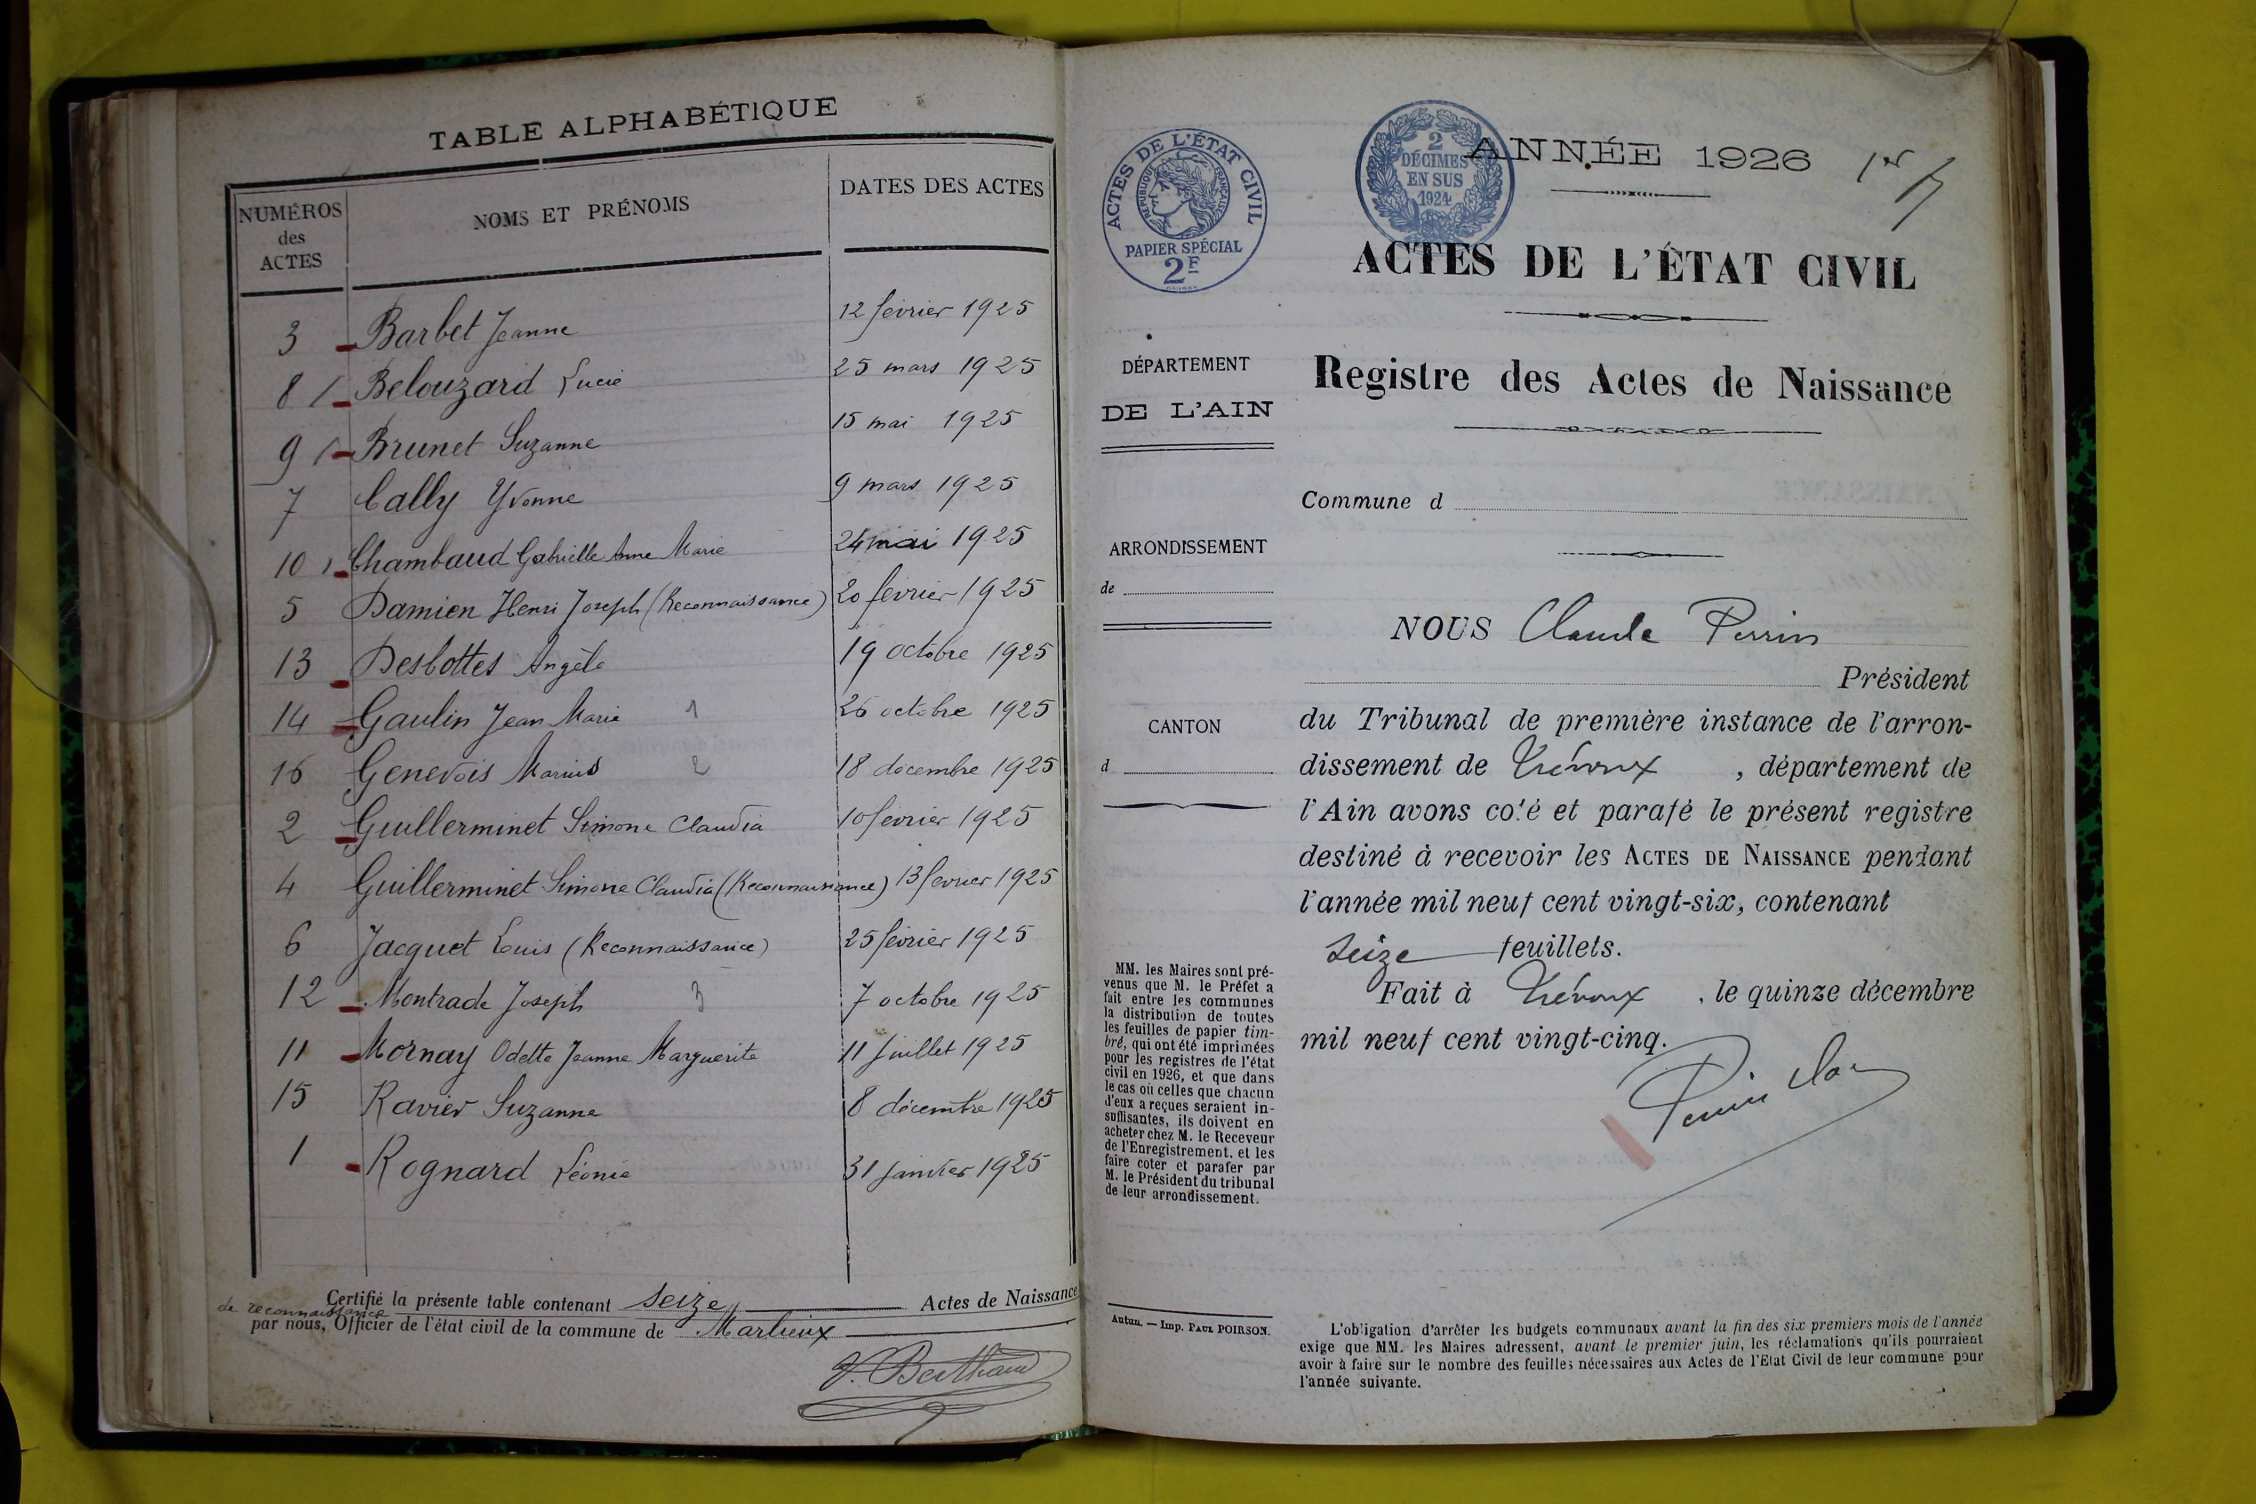 TABLE ALPHABÉTIQUE
NUMÉROS des ACTES
NOMS ET PRÉNOMS
DATES DES ACTES
3 Barbet Jeanne 12 février 1925
8 Belouzard Lucie 25 mars 1925
9 Brunet Suzanne 15 mai 1925
7 Cally Yvonne 9 mars 1925
10 Chambaud Gabrielle Anne Marie 24 mai 1925
5 Damien Henri Joseph (Reconnaissance) 20 février 1925
13 Desbottes Angèle 19 octobre 1925
14 Gaulin Jean Marie 1 26 octobre 1925
16 Genevois Marius 2 18 décembre 1925
2 Guillerminet Simone Claudia 10 février 1925
4 Guillerminet Simone Claudia (Reconnaissance) 13 février 1925
6 Jacquet Louis (Reconnaissance) 25 février 1925
12 Montrade Joseph 3 7 octobre 1925
11 Mornay Odette Jeanne Marguerite 11 juillet 1925
15 Ravier Suzanne 8 décembre 1925
1 Rognard Léonie 31 janvier 1925
Certifié la présente table contenant seize Actes de Naissance
de reconnaissance
par nous, Officier de l'état civil de la commune de Marlieux
J. Berthaud
ACTES DE L'ÉTAT CIVIL
RÉPUBLIQUE FRANÇAISE
PAPIER SPÉCIAL
2F
2
DÉCIMES
EN SUS
1924
ANNÉE 1926 1er
ACTES DE L'ÉTAT CIVIL
Registre des Actes de Naissance
DÉPARTEMENT
DE L'AIN
ARRONDISSEMENT
de
CANTON
d
MM. les Maires sont pré-
venus que M. le Préfet a
fait entre les communes
la distribution de toutes
les feuilles de papier tim-
bré, qui ont été imprimées
pour les registres de l'état
civil en 1926, et que dans
le cas où celles que chacun
d'eux a reçues seraient in-
suffisantes, ils doivent en
acheter chez M. le Receveur
de l'Enregistrement, et les
faire coter et parafer par
M. le Président du tribunal
de leur arrondissement.
Autun. — Imp. PAUL POIRSON.
Commune d
NOUS Claude Perrin
Président
du Tribunal de première instance de l'arron-
dissement de Trévoux, département de
l'Ain avons coté et parafé le présent registre
destiné à recevoir les ACTES DE NAISSANCE pendant
l'année mil neuf cent vingt-six, contenant
seize feuillets.
Fait à Trévoux, le quinze décembre
mil neuf cent vingt-cinq.
Perrin
L'obligation d'arrêter les budgets communaux avant la fin des six premiers mois de l'année
exige que MM. les Maires adressent, avant le premier juin, les réclamations qu'ils pourraient
avoir à faire sur le nombre des feuilles nécessaires aux Actes de l'Etat Civil de leur commune pour
l'année suivante.